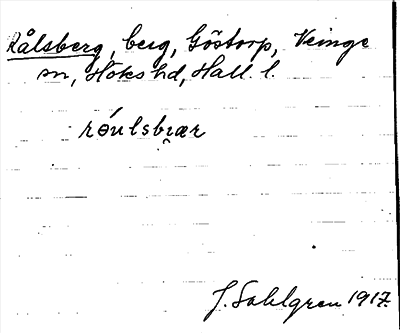 Rålsberg, berg, Göstorp, Veinge
sn, Höks hd, Hall. l.
róulsbıær
J. Sahlgren 1917.